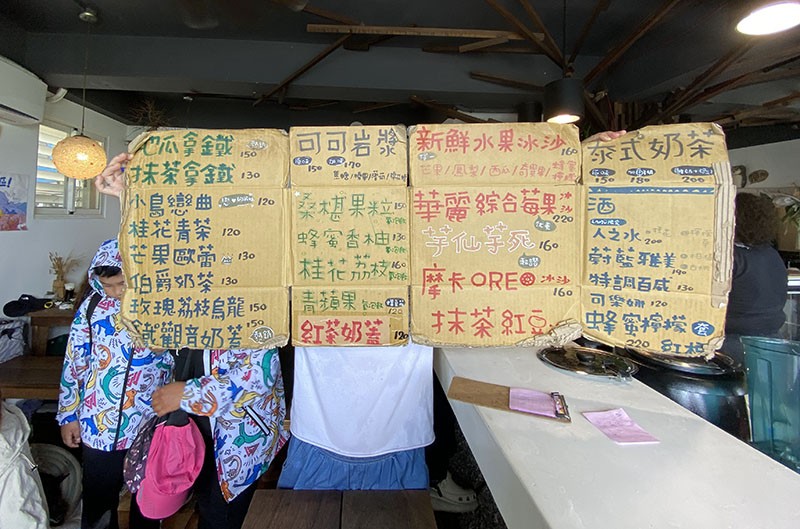 地瓜拿鐵 150
抹茶拿鐵 130
小鳥戀曲 120
桂花青茶 120
芒果歐蕾 130
伯爵奶茶 130
玫瑰荔枝烏龍 150
鐵觀音奶蓋 130
可可岩漿
150 170
桑椹果粒 150
蜂蜜香柚 160
桂花荔枝 160
青蘋果
紅茶奶蓋 120
新鮮水果冰沙
芒果/鳳梨/西瓜/奇異果 160
華麗綜合莓果冰沙 220
芋仙芋死 160
摩卡OREO冰沙 160
抹茶紅豆
泰式奶茶
150 180 200
酒
人之水 200
蔚藍雅美 190
特調百威 130
可樂娜 120
蜂蜜檸檬
220 紅柚